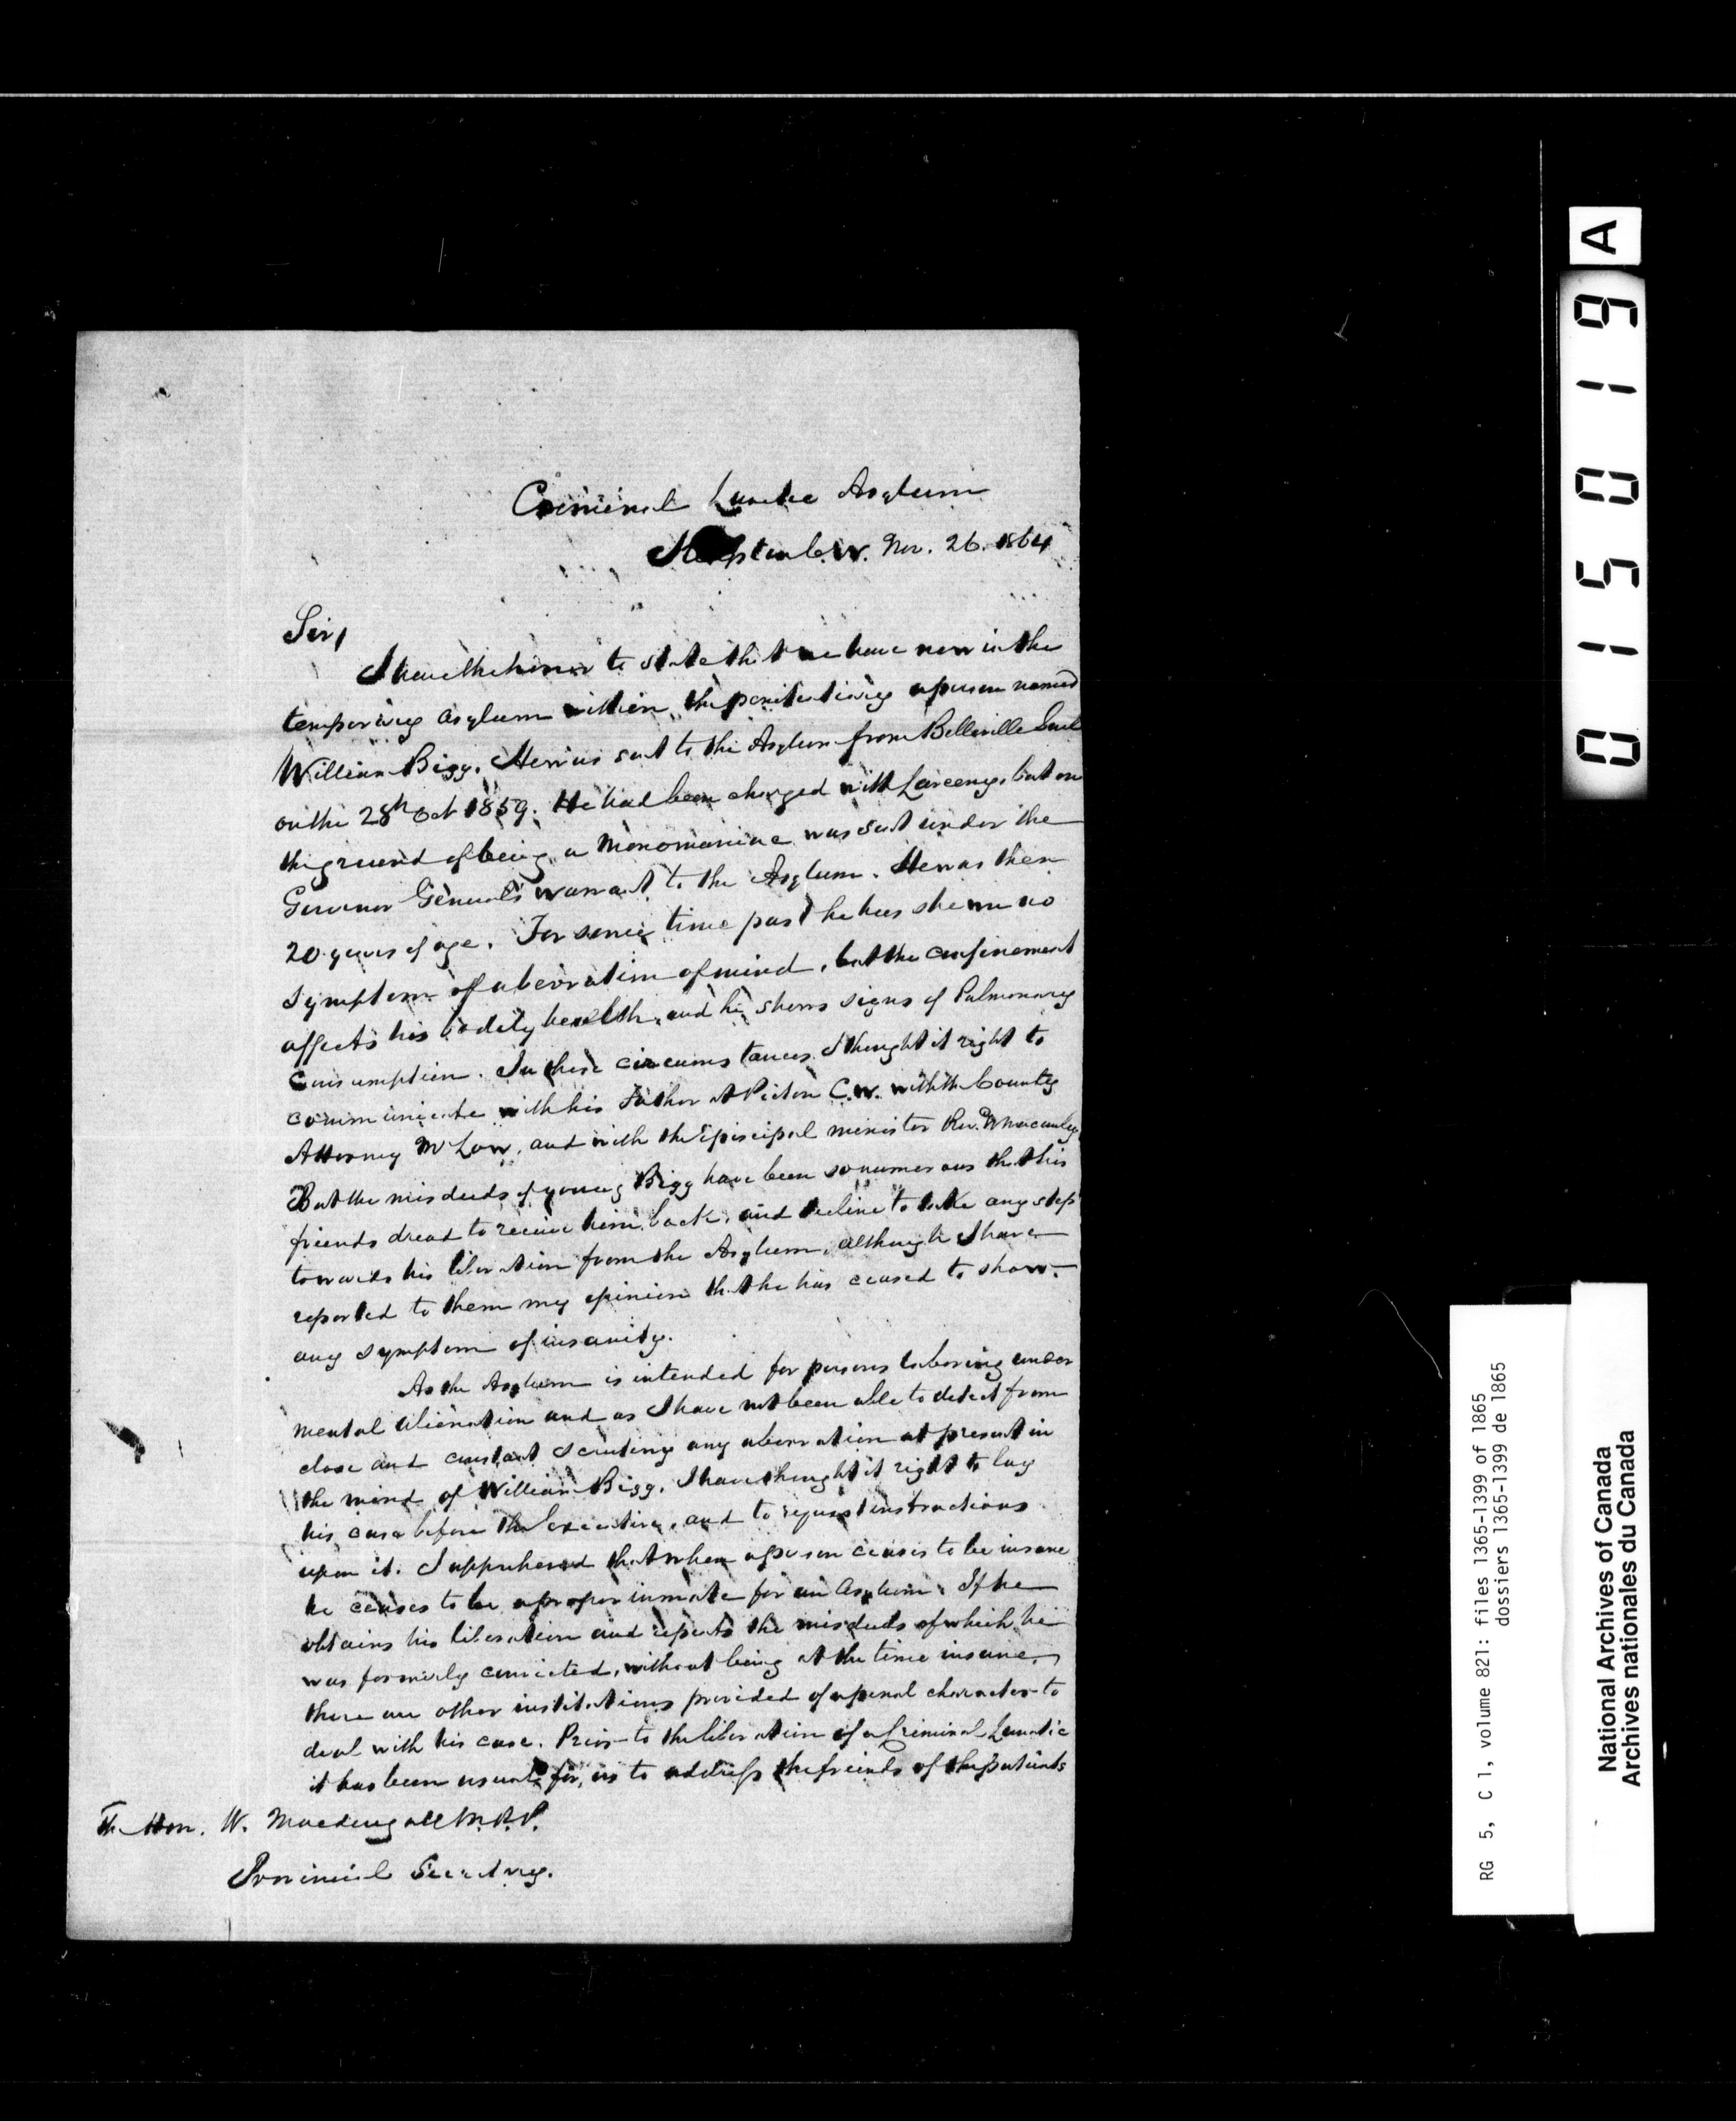 Criminal Lunatic Asylum
C.W. Nov. 26. 1864
Sir,
I have the honor to state that we have now in the
temporary asylum within the penitentiary a person named
William Bigg. He was sent to the Asylum from Belleville Gaol
on the 28th Oct 1859. He had been charged with Larceny, but on
the ground of being a Monomaniac was sent under the
Governor General's warrant to the Asylum. He was then
20 years of age. For some time past he has shewn no
symptom of aberration of mind, but the confinement
affects his bodily health, and he shows signs of Pulmonary
Consumption. In these circumstances I thought it right to
communicate with his Father at Picton C.W. with the County
Attorney Mr Low, and with the Episcipal minister Rev. Macauley,
But the misdeeds of young Bigg have been so numerous that his
friends dread to receive him back, and decline to take any step
towards his liberation from the Asylum, although I have
reported to them my opinion that he has ceased to show
any symptom of insanity.
As the Asylum is intended for persons laboring under
mental alienation and as I have not been able to detect from
close and constant scrutiny any aberration at present in
the mind of William Bigg, I have thought it right to lay
his case before the Executive, and to request instructions
upon it. I apprehend that when a person ceases to be insane
he ceases to be a proper inmate for an Asylum. If he
obtains his liberation and repeats the misdeeds of which he
was formerly convicted, without being at the time insane,
there are other institutions provided of a penal character to
deal with his case. Prior to the liberation of a Criminal Lunatic
it has been usual for us to address the friends of the patients
The Hon. W. Macdougall M.P.P.
Provincial Secretary.
A
015019
RG 5, C 1, volume 821: files 1365-1399 of 1865
dossiers 1365-1399 de 1865
National Archives of Canada
Archives nationales du Canada